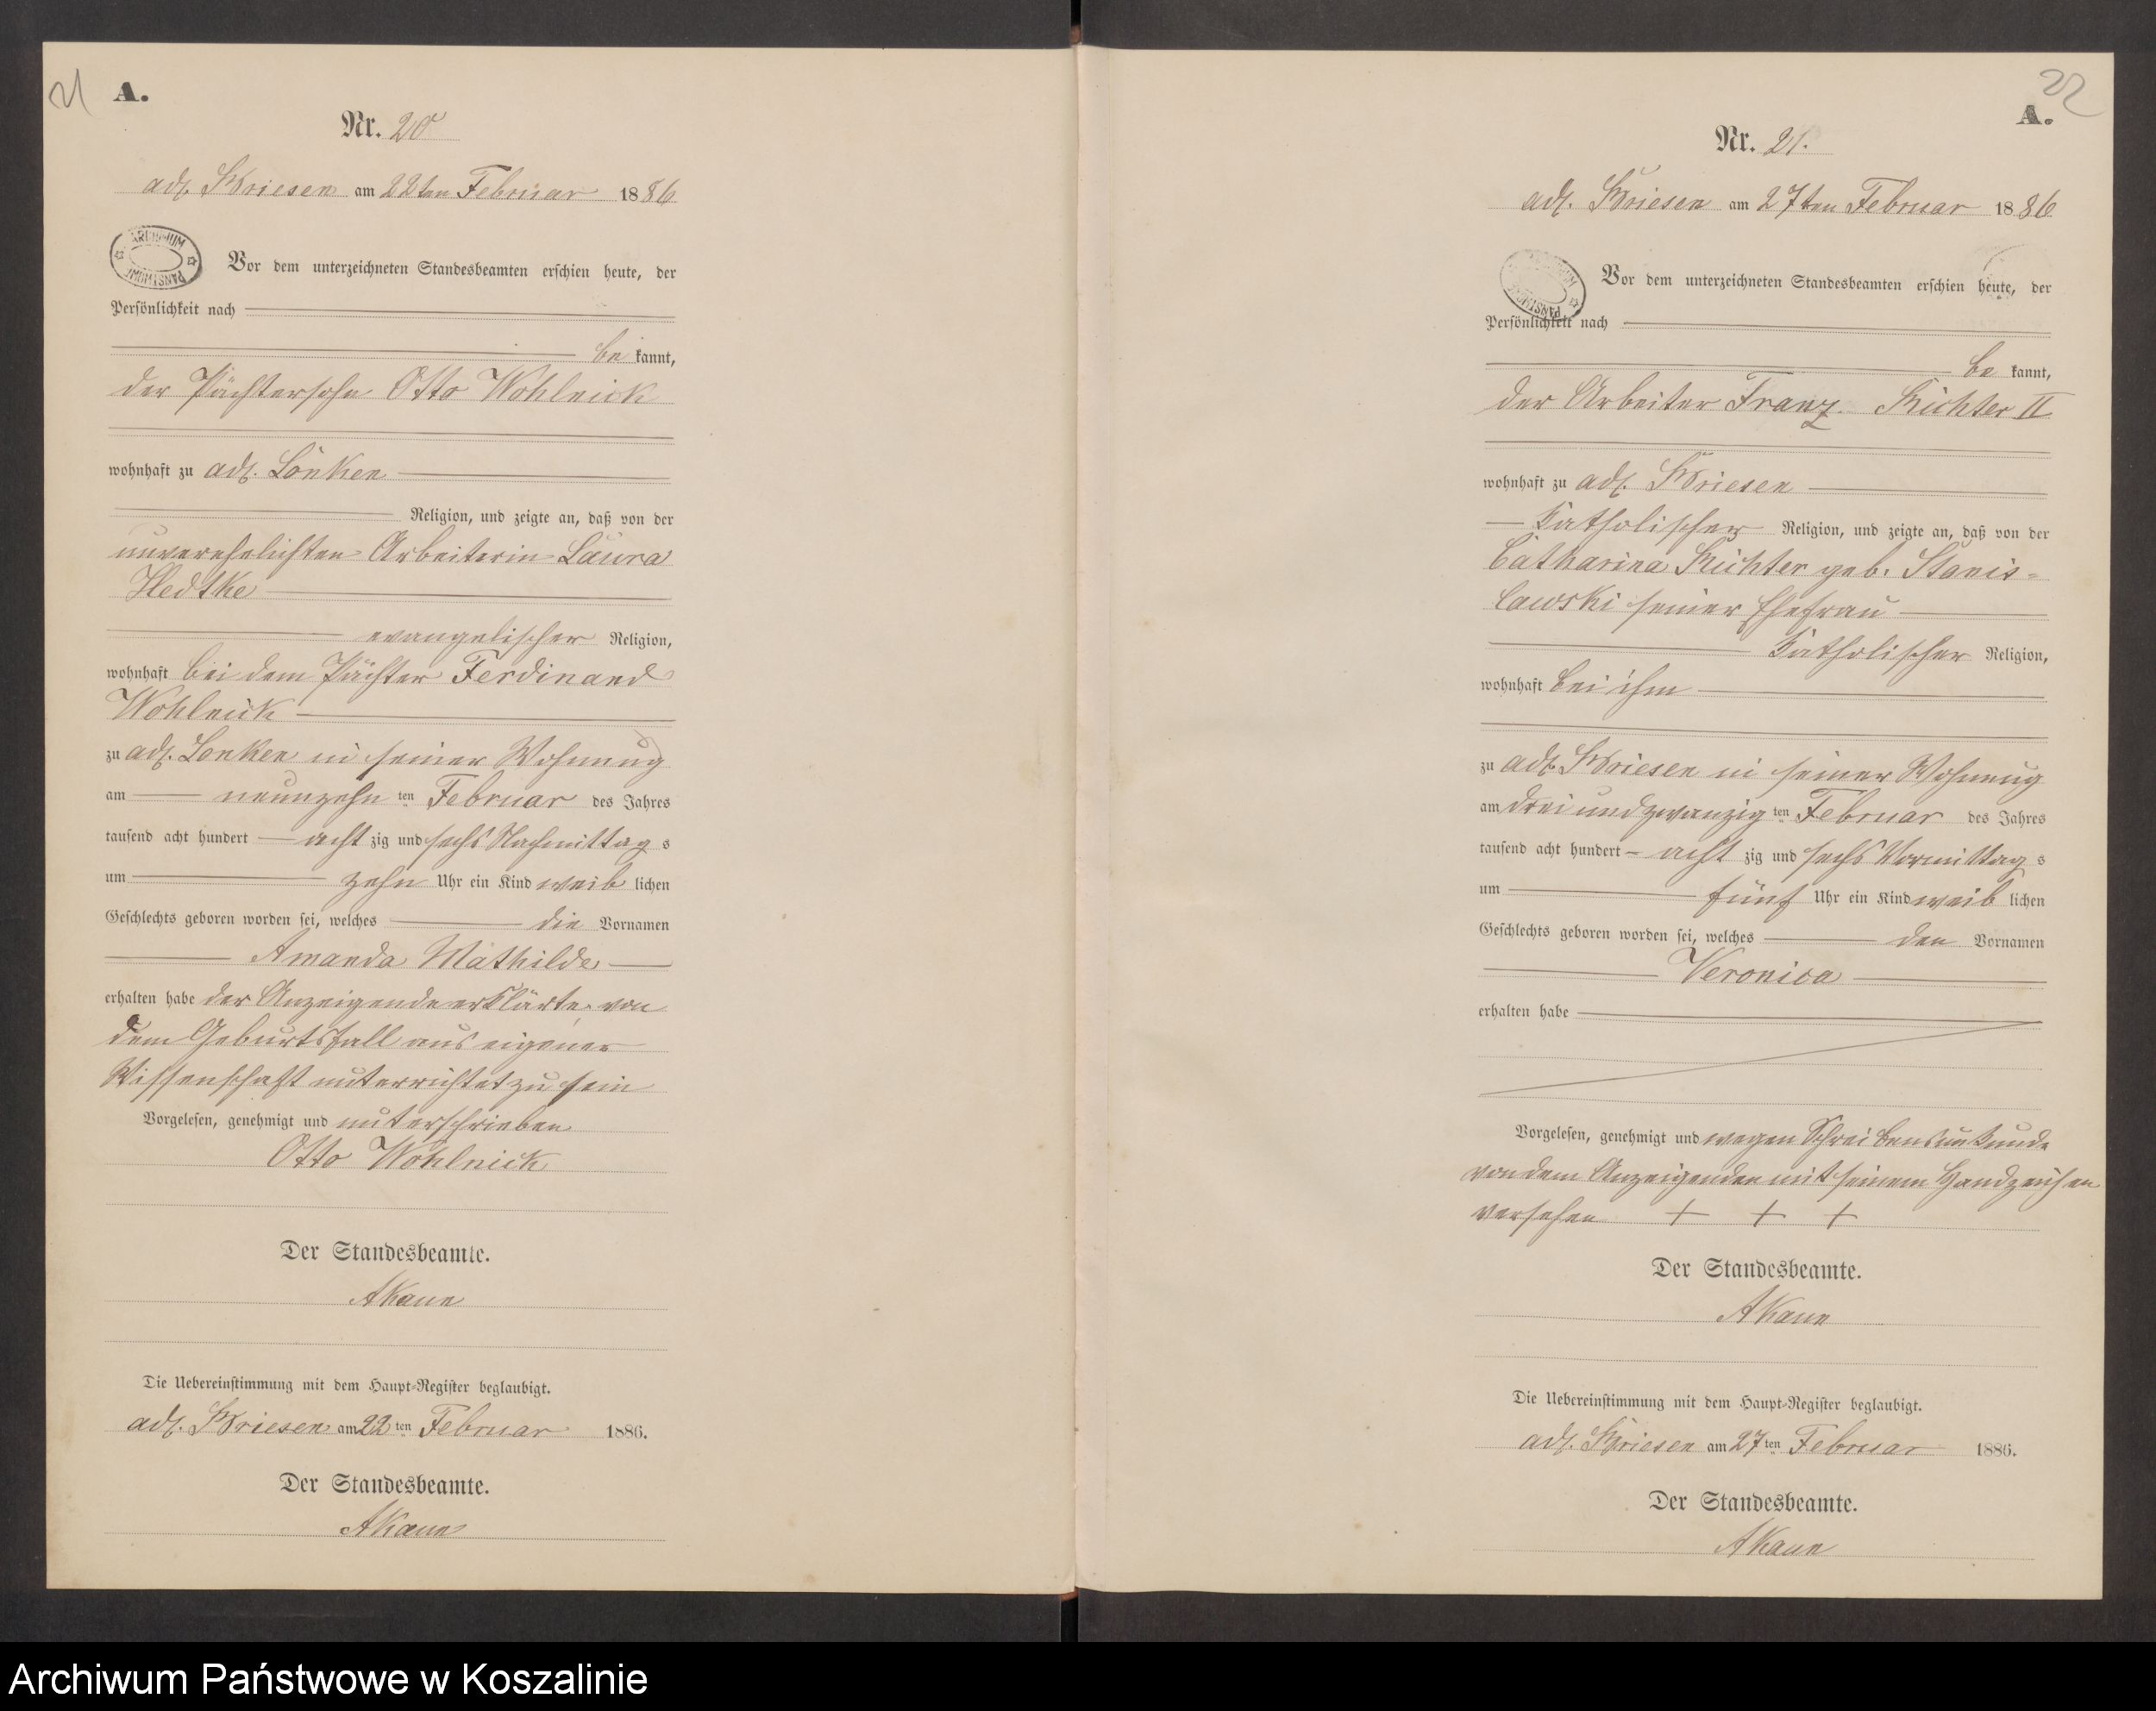 21
A.
Nr. 20
adl. Briesen am 22ten Februar 1886
ARCHIWUM PAŃSTWOWE
Vor dem unterzeichneten Standesbeamten erschien heute, der
Persönlichkeit nach
be kannt,
der Pächtersohn Otto Wohlneick
wohnhaft zu adl. Lonken
Religion, und zeigte an, daß von der
unverehelichten Arbeiterin Laura
Hedtke
evangelischer Religion,
wohnhaft bei dem Pächter Ferdinand
Wohlneick
zu adl. Lonken in seiner Wohnung
am neunzehn ten Februar des Jahres
tausend acht hundert acht zig und sechs Nachmittag s
um zehn Uhr ein Kind weib lichen
Geschlechts geboren worden sei, welches die Vornamen
Amanda Mathilde
erhalten habe der Anzeigende erklärte, von
dem Geburtsfall aus eigener
Wissenschaft unterrichtet zu sein
Vorgelesen, genehmigt und unterschrieben
Otto Wohlneick
Der Standesbeamte.
AKaun
Die Uebereinstimmung mit dem Haupt-Register beglaubigt.
adl. Briesen am 22 ten Februar 1886.
Der Standesbeamte.
AKaun
22
A.
Nr. 21.
adl. Briesen am 27ten Februar 1886
Vor dem unterzeichneten Standesbeamten erschien heute, der
Persönlichkeit nach
be kannt,
der Arbeiter Franz Richter II
wohnhaft zu adl. Briesen
Katholischer Religion, und zeigte an, daß von der
Catharina Richter geb. Stanis-
lawski seiner Ehefrau
Katholischer Religion,
wohnhaft bei ihm
zu adl. Briesen in seiner Wohnung
am drei und zwanzig ten Februar des Jahres
tausend acht hundert acht zig und sechs Vormittag s
um fünf Uhr ein Kind weib lichen
Geschlechts geboren worden sei, welches den Vornamen
Veronica
erhalten habe
Vorgelesen, genehmigt und wegen Schreibensunkunde
von dem Anzeigenden mit seinem Handzeichen
versehen + + +
Der Standesbeamte.
AKaun
Die Uebereinstimmung mit dem Haupt-Register beglaubigt.
adl. Briesen am 27 ten Februar 1886.
Der Standesbeamte.
AKaun
Archiwum Państwowe w Koszalinie